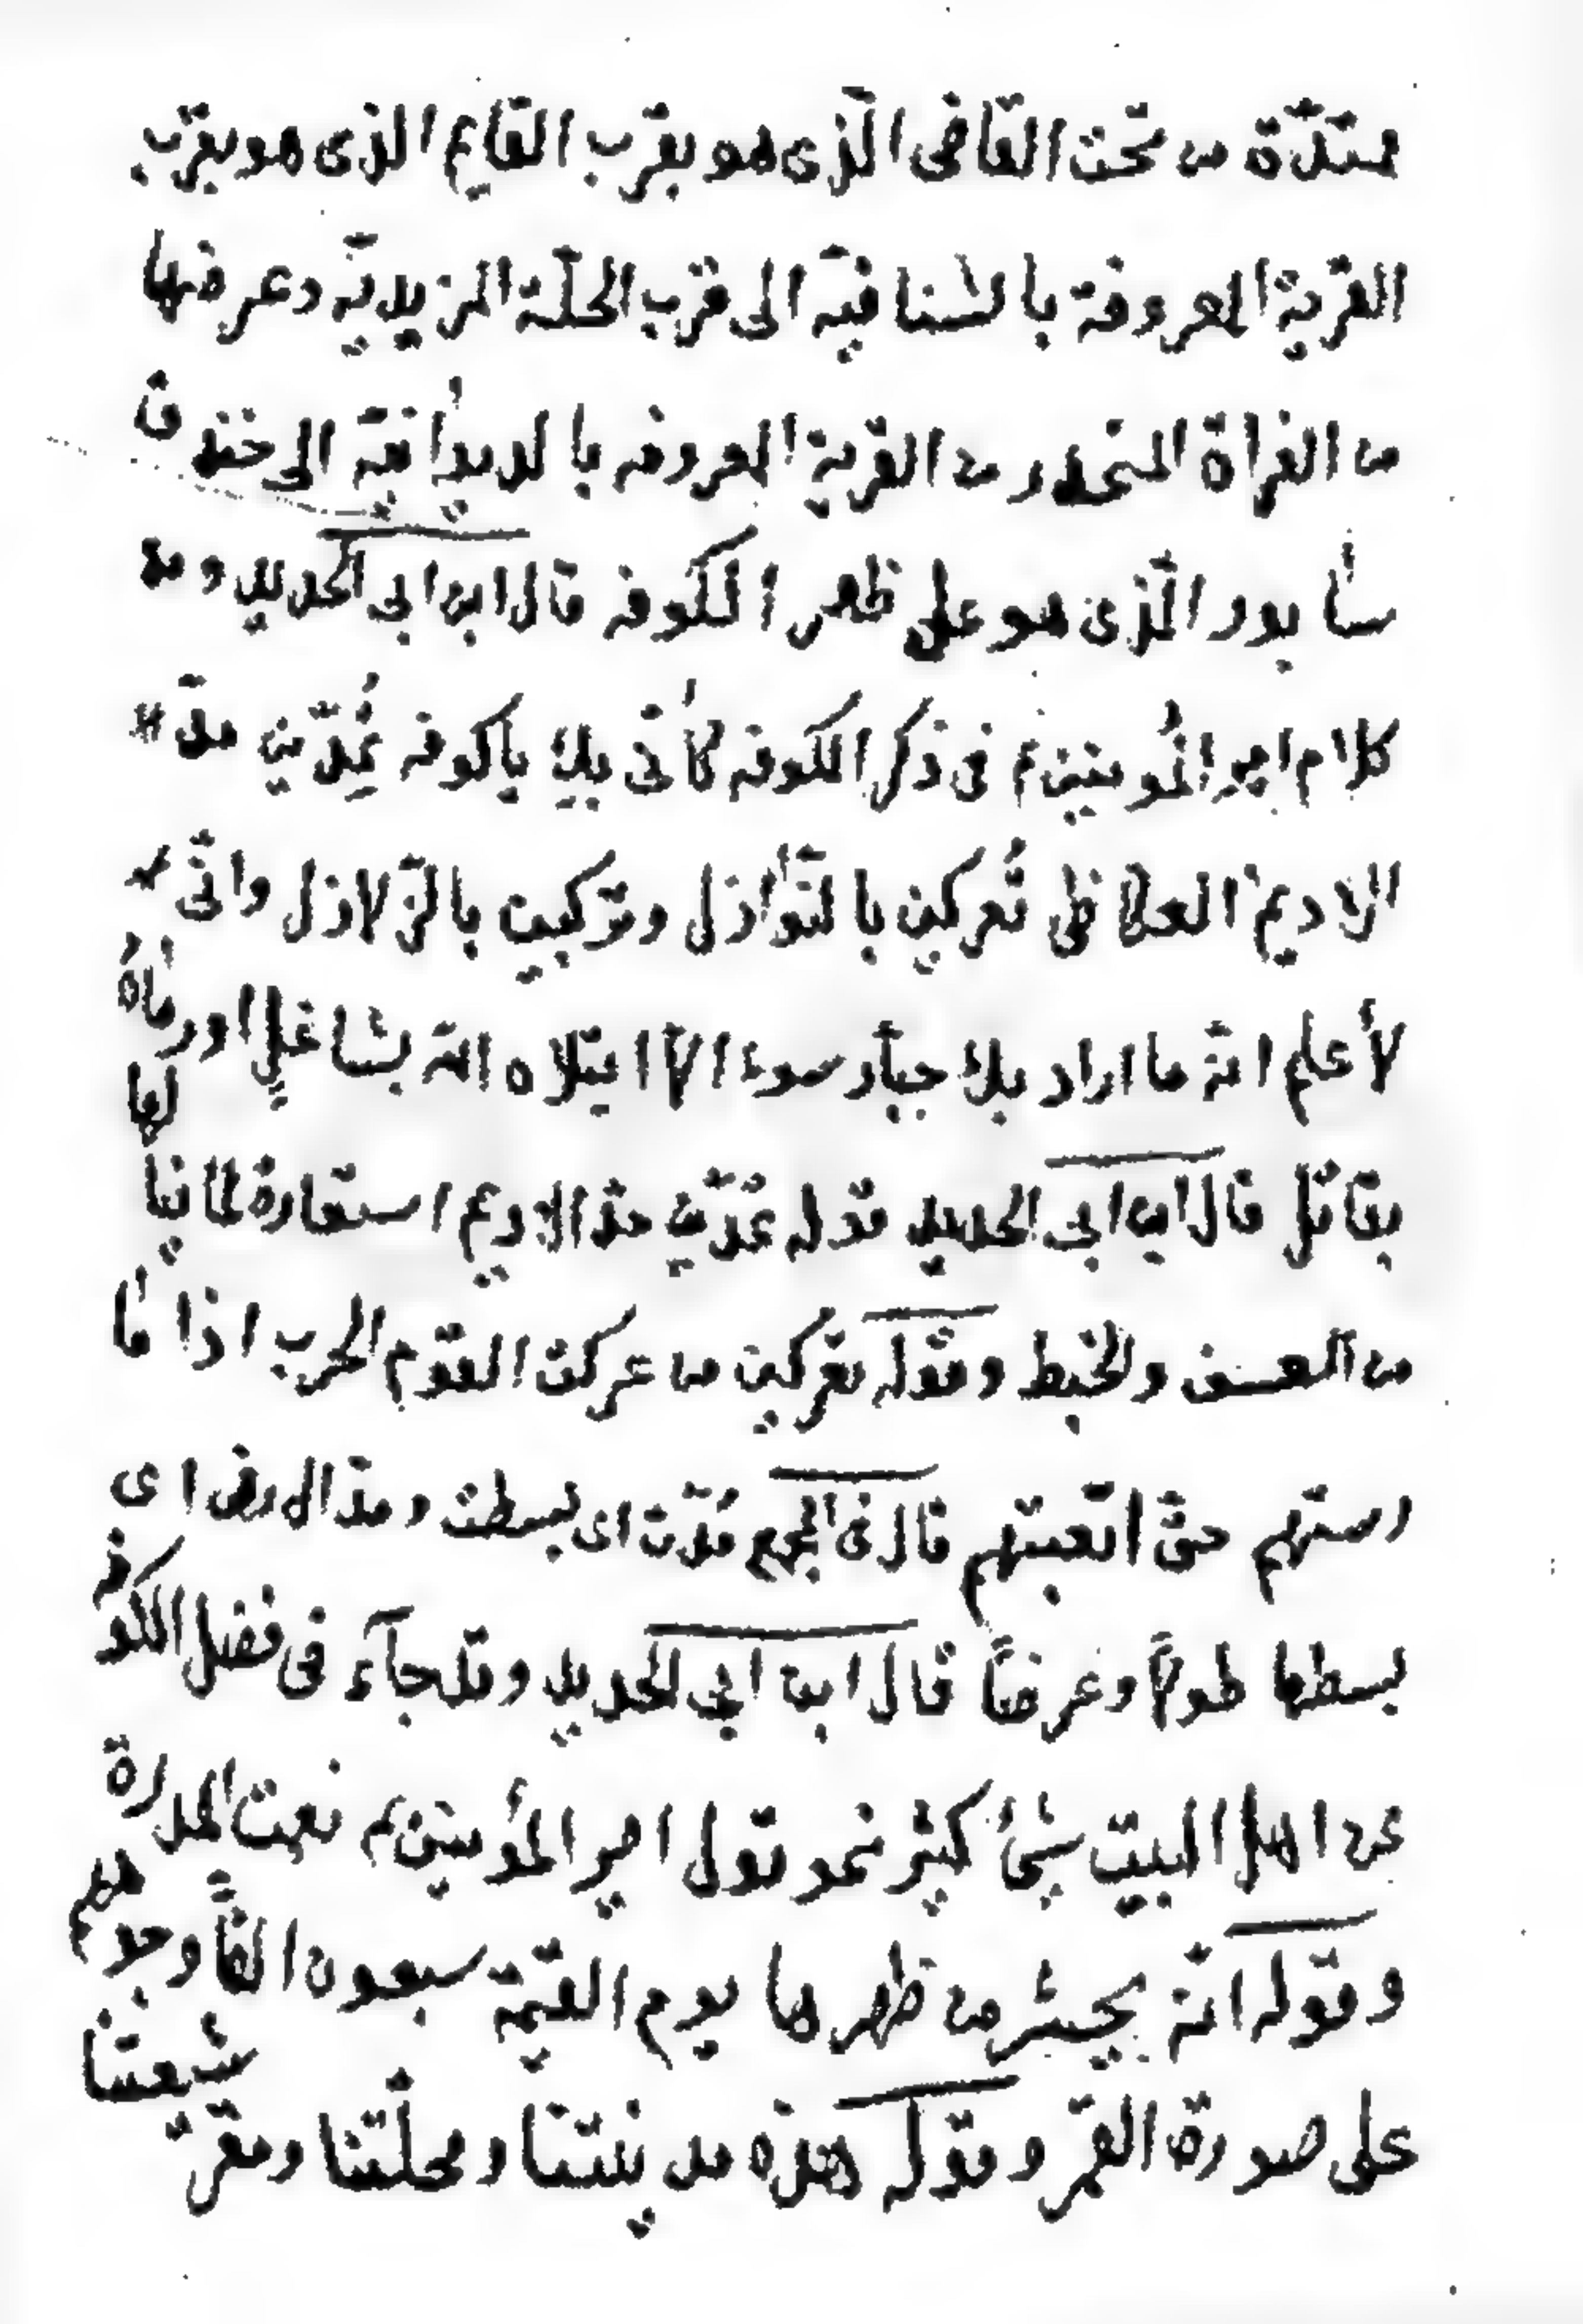 ممتدّة من تحت القاضى الّذى هو بقرب القايم الذى هو بقرب
القرية المعروفة بالشنافيّة الى قرب الحلّة المزيديّة وعرضها
من الفراة المنحدر من القرية المعروفه بالديوانيّة الى خندق
سابور الّذى هو على ظهر الكوفه قال ابن ابى الحديد ومن
كلام امير المؤمنين ع فى ذكر الكوفه كأنّى بك ياكوفه تُمدّين مدّ
الاديم العكاظى تُعركين بالنّوازل وتركبين بالزّلازل وانّى
لأعلم انّه ما اراد بك جبّار سوء الّا ابتلاه الله بشاغل اورماه
بقاتل قال ابن ابى الحديد قوله تمدّين مدّ الاديم استعارة لما ينالها
من العسف والخبط وقوله تعركين من عركت القوم الحرب اذا ما
رستهم حتّى اتعبتهم قال فى المجمع مُدّت اى بسطت ومدّ الارض اى
بسطها طولاً وعرضاً قال ابن ابي الحديد وقد جآء فى فضل الكوفه
عن اهل البيت شيئ كثير نحو قول امير المؤمنين ع نعمت المدرة
وقوله انّه يحشر من ظهرها يوم القيمة سبعون الفاً وجوههم
على صورة القمر وقوله هذه مدينتنا ومحلّتنا ومقرّ شيعتنا